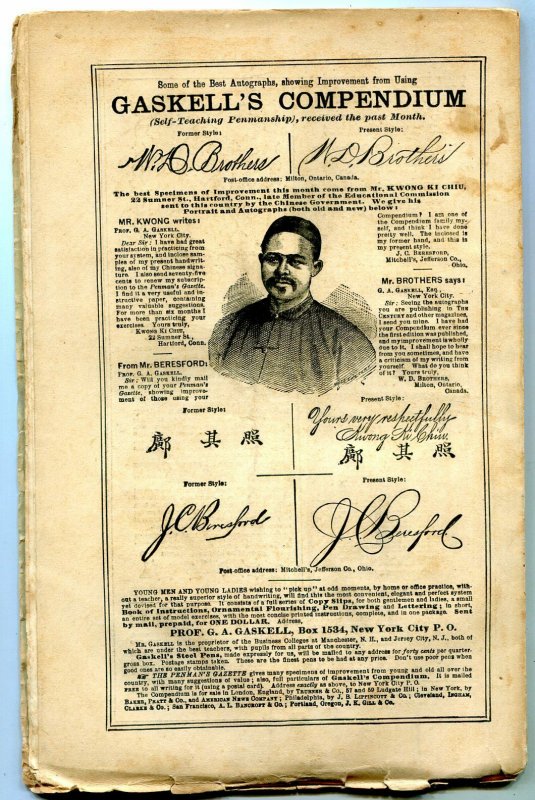 Some of the Best Autographs, showing Improvement from Using
GASKELL'S COMPENDIUM
(Self-Teaching Penmanship), received the past Month.
Former Style: Present Style:
W. D. Brothers W. D. Brothers
Post-office address: Milton, Ontario, Canada.
The best Specimens of Improvement this month come from Mr. KWONG KI CHIU,
22 Sumner St., Hartford, Conn., late Member of the Educational Commission
sent to this country by the Chinese Government. We give his
Portrait and Autographs (both old and new) below:
MR. KWONG writes:
PROF. G. A. GASKELL,
New York City.
Dear Sir: I have had great
satisfaction in practicing from
your system, and inclose sam-
ples of my present handwrit-
ing, also of my Chinese signa-
ture. I also send seventy-five
cents to renew my subscrip-
tion to the Penman's Gazette.
I find it a very useful and in-
structive paper, containing
many valuable suggestions.
For more than six months I
have been practicing your
exercises. Yours truly,
KWONG KI CHIU,
22 Sumner St.,
Hartford, Conn.
From Mr. BERESFORD:
PROF. G. A. GASKELL,
Sir: Will you kindly mail
me a copy of your Penman's
Gazette, showing improve-
ment of those using your
Compendium? I am one of
the Compendium family my-
self, and think I have done
pretty well. The inclosed is
my former hand, and this is
my present style.
J. C. BERESFORD,
Mitchell's, Jefferson Co.,
Ohio.
Mr. BROTHERS says:
G. A. GASKELL, Esq.,
New York City.
Sir: Seeing the autographs
you are publishing in THE
CENTURY and other magazines,
I send you mine. I have had
your Compendium ever since
the first edition was published,
and my improvement is wholly
due to it. I shall hope to hear
from you sometimes, and have
a criticism of my writing from
yourself. What do you think
of it? Yours truly,
W. D. BROTHERS,
Milton, Ontario,
Canada.
Former Style: Present Style:
Yours very respectfully
Kwong Ki Chiu.
鄺 其 照 鄺 其 照
Former Style: Present Style:
J. C. Beresford J. C. Beresford
Post-office address: Mitchell's, Jefferson Co., Ohio.
YOUNG MEN AND YOUNG LADIES wishing to "pick up" at odd moments, by home or office practice, with-
out a teacher, a really superior style of handwriting, will find this the most convenient, elegant and perfect system
yet devised for that purpose. It consists of a full series of Copy Slips, for both gentlemen and ladies, a small
Book of Instructions, Ornamental Flourishing, Pen Drawing and Lettering; in short,
an entire set of model exercises, with the most concise printed instructions, complete, and in one package. Sent
by mail, prepaid, for ONE DOLLAR. Address,
PROF. G. A. GASKELL, Box 1534, New York City P. O.
MR. GASKELL is the proprietor of the Business Colleges at Manchester, N. H., and Jersey City, N. J., both of
which are under the best teachers, with pupils from all parts of the country.
Gaskell's Steel Pens, made expressly for us, will be mailed to any address for forty cents per quarter-
gross box. Postage stamps taken. These are the finest pens to be had at any price. Don't use poor pens when
good ones are so easily obtainable.
☞ THE PENMAN'S GAZETTE gives many specimens of improvement from young and old all over the
country, with many suggestions of value; also, full particulars of Gaskell's Compendium. It is mailed
FREE to all writing for it (using a postal card). Address exactly as above, to New York City P. O.
The Compendium is for sale in London, England, by TRUBNER & CO., 57 and 59 Ludgate Hill; in New York, by
BAKER, PRATT & CO., and AMERICAN NEWS COMPANY; Philadelphia, by J. B. LIPPINCOTT & CO.; Cleveland, INGHAM,
CLARKE & CO.; San Francisco, A. L. BANCROFT & CO.; Portland, Oregon, J. K. GILL & CO.